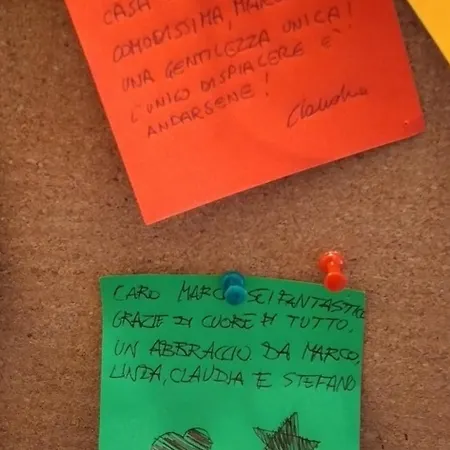 CASA
COMODISSIMA, MARCO
UNA GENTILEZZA UNICA!
L'UNICO DISPIACERE È
ANDARSENE!
Claudia
CARO MARCO SEI FANTASTICO
GRAZIE DI CUORE DI TUTTO.
UN ABBRACCIO DA MARCO,
LINDA, CLAUDIA E STEFANO